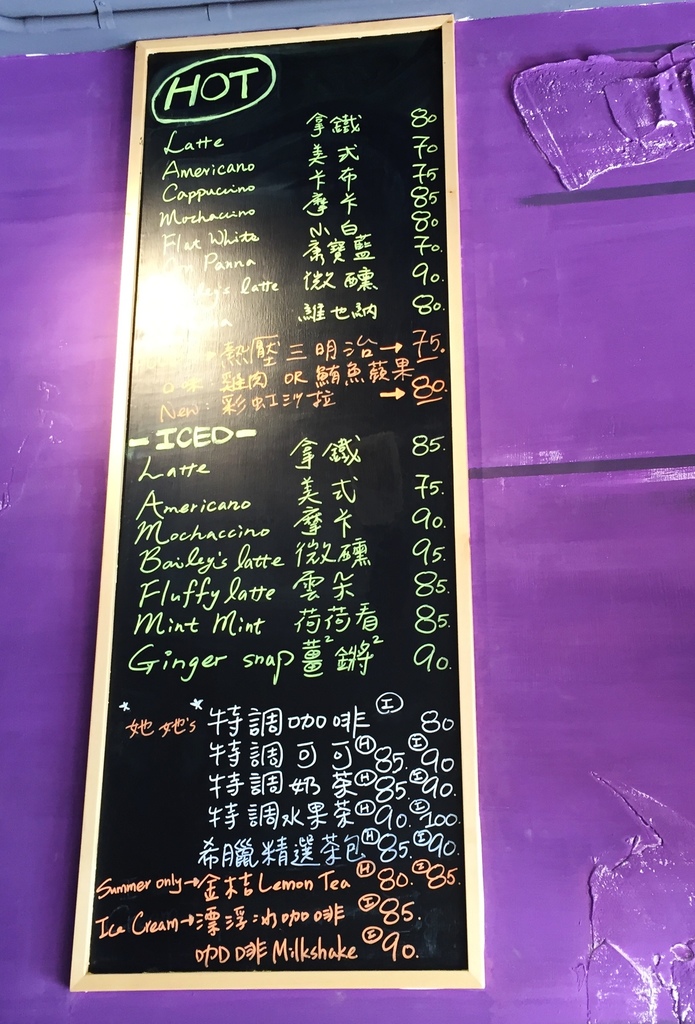 HOT
Latte 拿鐵 80
Americano 美式 70
Cappuccino 卡布 75
Mochaccino 摩卡 85
Flat White 小白 80
Panna 康寶藍 70.
latte 微醺 90.
維也納 80.
熱壓三明治→75.
雞肉 OR 鮪魚蘋果
New: 彩虹沙拉 →80.
-ICED-
Latte 拿鐵 85.
Americano 美式 75.
Mochaccino 摩卡 90.
Bailey's latte 微醺 95.
Fluffy latte 雲朵 85.
Mint Mint 荷荷看 85.
Ginger snap 薑²鏘² 90.
*她她's* 特調咖啡 Ⓘ 80
特調可可 Ⓗ85. Ⓘ90
特調奶茶 Ⓗ85. Ⓘ90.
特調水果茶 Ⓗ90. Ⓘ100.
希臘精選茶包 Ⓗ85. Ⓘ90.
Summer only→金桔Lemon Tea Ⓗ80. Ⓘ85.
Ice Cream→漂浮冰咖啡 Ⓘ85.
咖啡Milkshake Ⓘ90.